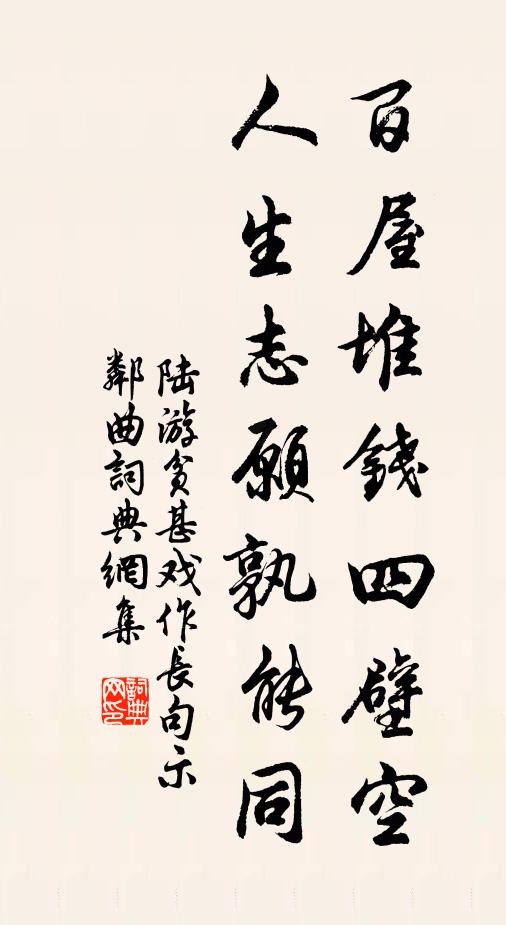 百屋堆錢四壁空
人生志願孰能同
陆游贫甚戏作長句示
鄰曲詞典網集
詞典
网印